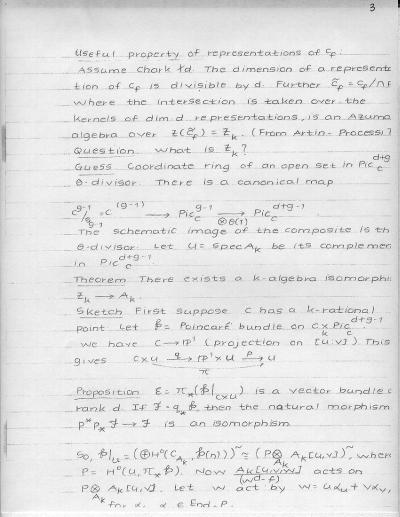 3
Useful property of representations of C_f:
Assume Chark ∤d. The dimension of a representa
tion of C_f is divisible by d. Further C̃_f = C_f/∩
where the intersection is taken over the
kernels of dim. d representations, is an Azuma
algebra over Z(C̃_f) = Z_k. (From Artin-Processi)
Question What is Z_k?
Guess Coordinate ring of an open set in Pic_C^{d+g-
θ-divisor. There is a canonical map
C^{g-1}/S_{g-1} = C^{(g-1)} → Pic_C^{g-1} →_{⊗θ(1)} Pic_C^{d+g-1}
The schematic image of the composite is th
θ-divisor. Let U = Spec A_k be its complemen
in Pic_C^{d+g-1}.
Theorem There exists a k-algebra isomorphi
Z_k → A_k.
Sketch First suppose C has a k-rational
point. Let 𝒫 = Poincaré bundle on C ×_k Pic_C^{d+g-1}
We have C → ℙ' (projection on [u:v]) This
gives C×U →^q ℙ'×U →^p U
π
Proposition ℰ = π_*(𝒫|_{C×U}) is a vector bundle o
rank d. If ℱ = q_*𝒫, then the natural morphism
p^*p_*ℱ → ℱ is an isomorphism
So, 𝒫|_U = (⊕H°(C_{A_k}, 𝒫(n)))~ ≅ (P⊗_{A_k} A_k[u,v])~, wher
P = H°(U, π_*𝒫). Now A_k[u,v,w]/(w^d-f) acts on
P⊗_{A_k} A_k[u,v]. Let w act by w = uα_u + vα_v,
for α, α ∈ End P.